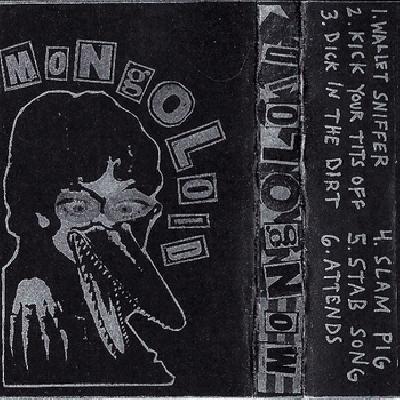 MONGOLOID
MONGOLOID
1. WALLET SNIFFER
2. KICK YOUR TITS OFF
3. DICK IN THE DIRT
4. SLAM PIG
5. STAB SONG
6. ATTENDS